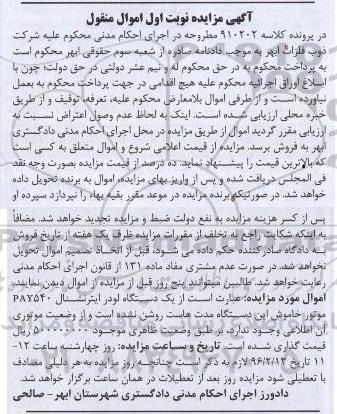 آگهی مزایده نوبت اول اموال منقول
در پرونده کلاسه ۹۱۰۲۰۲ مطروحه در اجرای احکام مدنی محکوم علیه شرکت
ذوب فلزات ابهر به موجب دادنامه صادره از شعبه سوم حقوقی ابهر محکوم است
به پرداخت محکوم به در حق محکوم له و نیم عشر دولتی در حق دولت؛ چون با
ابلاغ اوراق اجرائیه محکوم علیه هیچ اقدامی در جهت پرداخت محکوم به بعمل
نیاورده است و از طرفی اموال بلامعارض محکوم علیه، تعرفه، توقیف و از طریق
خبره محلی ارزیابی شده است. اینک به لحاظ عدم وصول اعتراض نسبت به
ارزیابی مقرر گردید اموال از طریق مزایده در محل اجرای احکام مدنی دادگستری
ابهر به فروش برسد. مزایده از قیمت اعلامی شروع و اموال متعلق به کسی است
که بالاترین قیمت را پیشنهاد نماید. ده درصد از قیمت مزایده بصورت وجه نقد
فی المجلس دریافت شده و پس از واریز بهای مزایده، اموال به برنده تحویل داده
خواهد شد. در صورتیکه برنده مزایده در موعد مقرر بقیه بهاء را نپردازد سپرده او
پس از کسر هزینه مزایده به نفع دولت ضبط و مزایده تجدید خواهد شد. مضافاً
به اینکه شکایت راجع به تخلف از مقررات مزایده ظرف یک هفته از تاریخ فروش
به دادگاه صادرکننده حکم داده می شود، قبل از اتخاذ تصمیم اموال تحویل
نخواهد شد، در صورت عدم مشتری مفاد ماده ۱۳۱ از قانون اجرای احکام مدنی
رعایت خواهد شد. طالبین میتوانند پنج روز قبل از مزایده از اموال دیدن نمایند.
اموال مورد مزایده: عبارت است از یک دستگاه لودر اینترنشنال PAY۵۴۰
موتور خاموش این دستگاه مدت هاست روشن نشده است و از وضعیت موتوری
آن اطلاعی وجود ندارد، بر طبق وضعیت ظاهری موجود ۵۰۰۰۰۰۰۰۰ ریال
قیمت گذاری شده است. تاریخ و ساعت مزایده: روز چهارشنبه ساعت ۱۲-
۱۱ تاریخ ۹۶/۲/۱۳ لازم به ذکر است چنانچه روز مزایده به هر دلیلی مصادف
با تعطیلی شود مزایده روز بعد از تعطیلات در همان ساعت برگزار خواهد شد.
دادورز اجرای احکام مدنی دادگستری شهرستان ابهر- صالحی